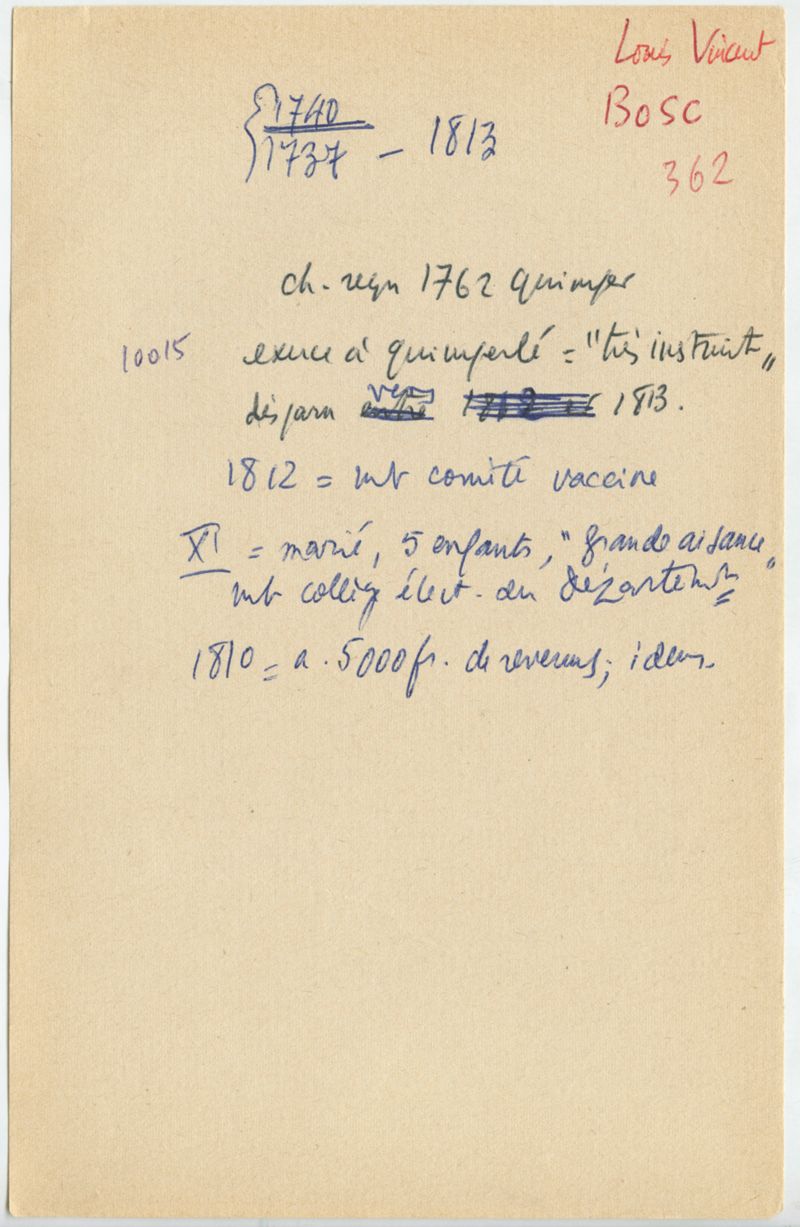 Louis Vincent
BOSC
362
1740
1737 - 1813
ch. reçu 1762 Quimper
10015 exerce à Quimperlé = "très instruit"
disparu vers 1813.
1812 = mb comité vaccine
XI = marié, 5 enfants, "grande aisance"
mb collège élect. du département
1810 = a. 5000 fr. de revenus; idem.